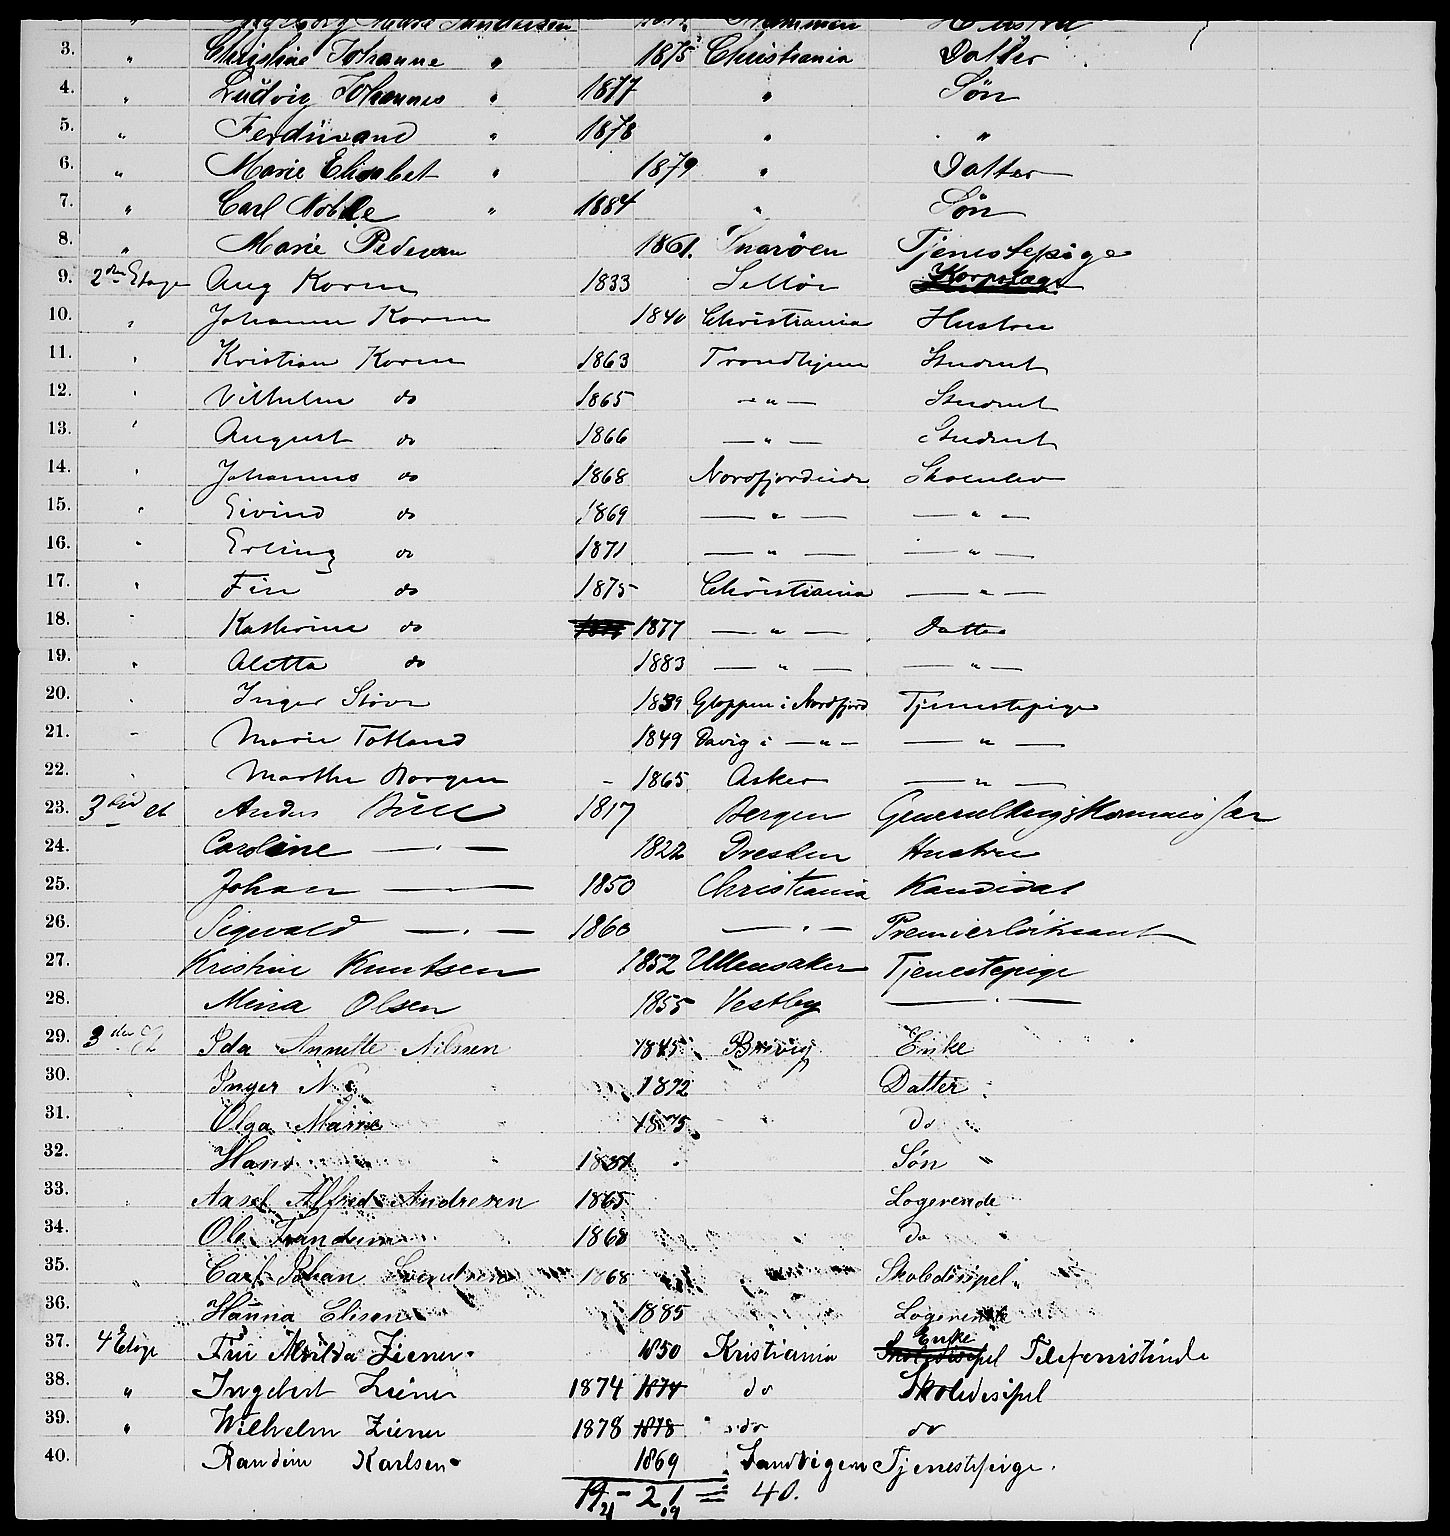 3. " Christine Johanne " 1875 Christiania Datter
4. " Ludvig Johannes " 1877 " Søn
5. " Ferdinand " 1878 " "
6. " Marie Elisabet " 1879 " Datter
7. " Carl Noble " 1884 " Søn
8. " Marie Pedersen 1861. Snarøen Tjenestepige
9. 2den Etage Aug Koren 1833 Selløe Korpslæge
10. " Johanne Koren 1840 Christiania Hustru
11. " Kristian Koren 1863 Trondhjem Student
12. " Vilhelm do 1865 — " — Student
13. " August do 1866 — " — Student
14. " Johannes do 1868 Nordfjordeide Skoleelev
15. " Eivind do 1869 — " — — " —
16. " Erling do 1871 — " — — " —
17. " Fin do 1875 Christiania — " —
18. " Kathrine do 1877 — " — Datter
19. " Aletta do 1883 — " — — " —
20. " Inger Støve 1839 Gloppen i Nordfjord Tjenestepige
21. " Marie Totland 1849 Davig i — " — — " —
22. " Marthe Borgen 1865 Asker — " —
23. 3die Et Anders Bull 1817 Bergen Generalkrigskommissær
24. Caroline — " — 1822 Dresden Hustru
25. Johan — " — 1850 Christiania Kandidat
26. Sigvald — " — 1860 — " — Premierløitnant
27. Kristine Knutsen 1852 Ullensaker Tjenestepige
28. Mina Olsen 1855 Vestby — " —
29. 3die Et Ida Annette Nilssen 1845 Brevig Enke
30. Inger N. 1872 Datter
31. Olga Marie 1875 do
32. Hans 1881 Søn
33. Axsel Alfred Andresen 1865 Logerende
34. Ole 1868 do
35. Carl Johan 1868 Skoledisipel
36. Hanna Elisen 1885 Logerende
37. 4 Etage Fru Ziener 1850 Kristiania Skoledisipel Enke Telefonistinde
38. " Ingebert Ziener 1874 1874 do Skoledisipel
39. " Wilhelm Ziener 1878 1878 do do
40. Randine Karlsen 1869 Sandvigen Tjenestepige.
19 - 21 = 40.
21 19